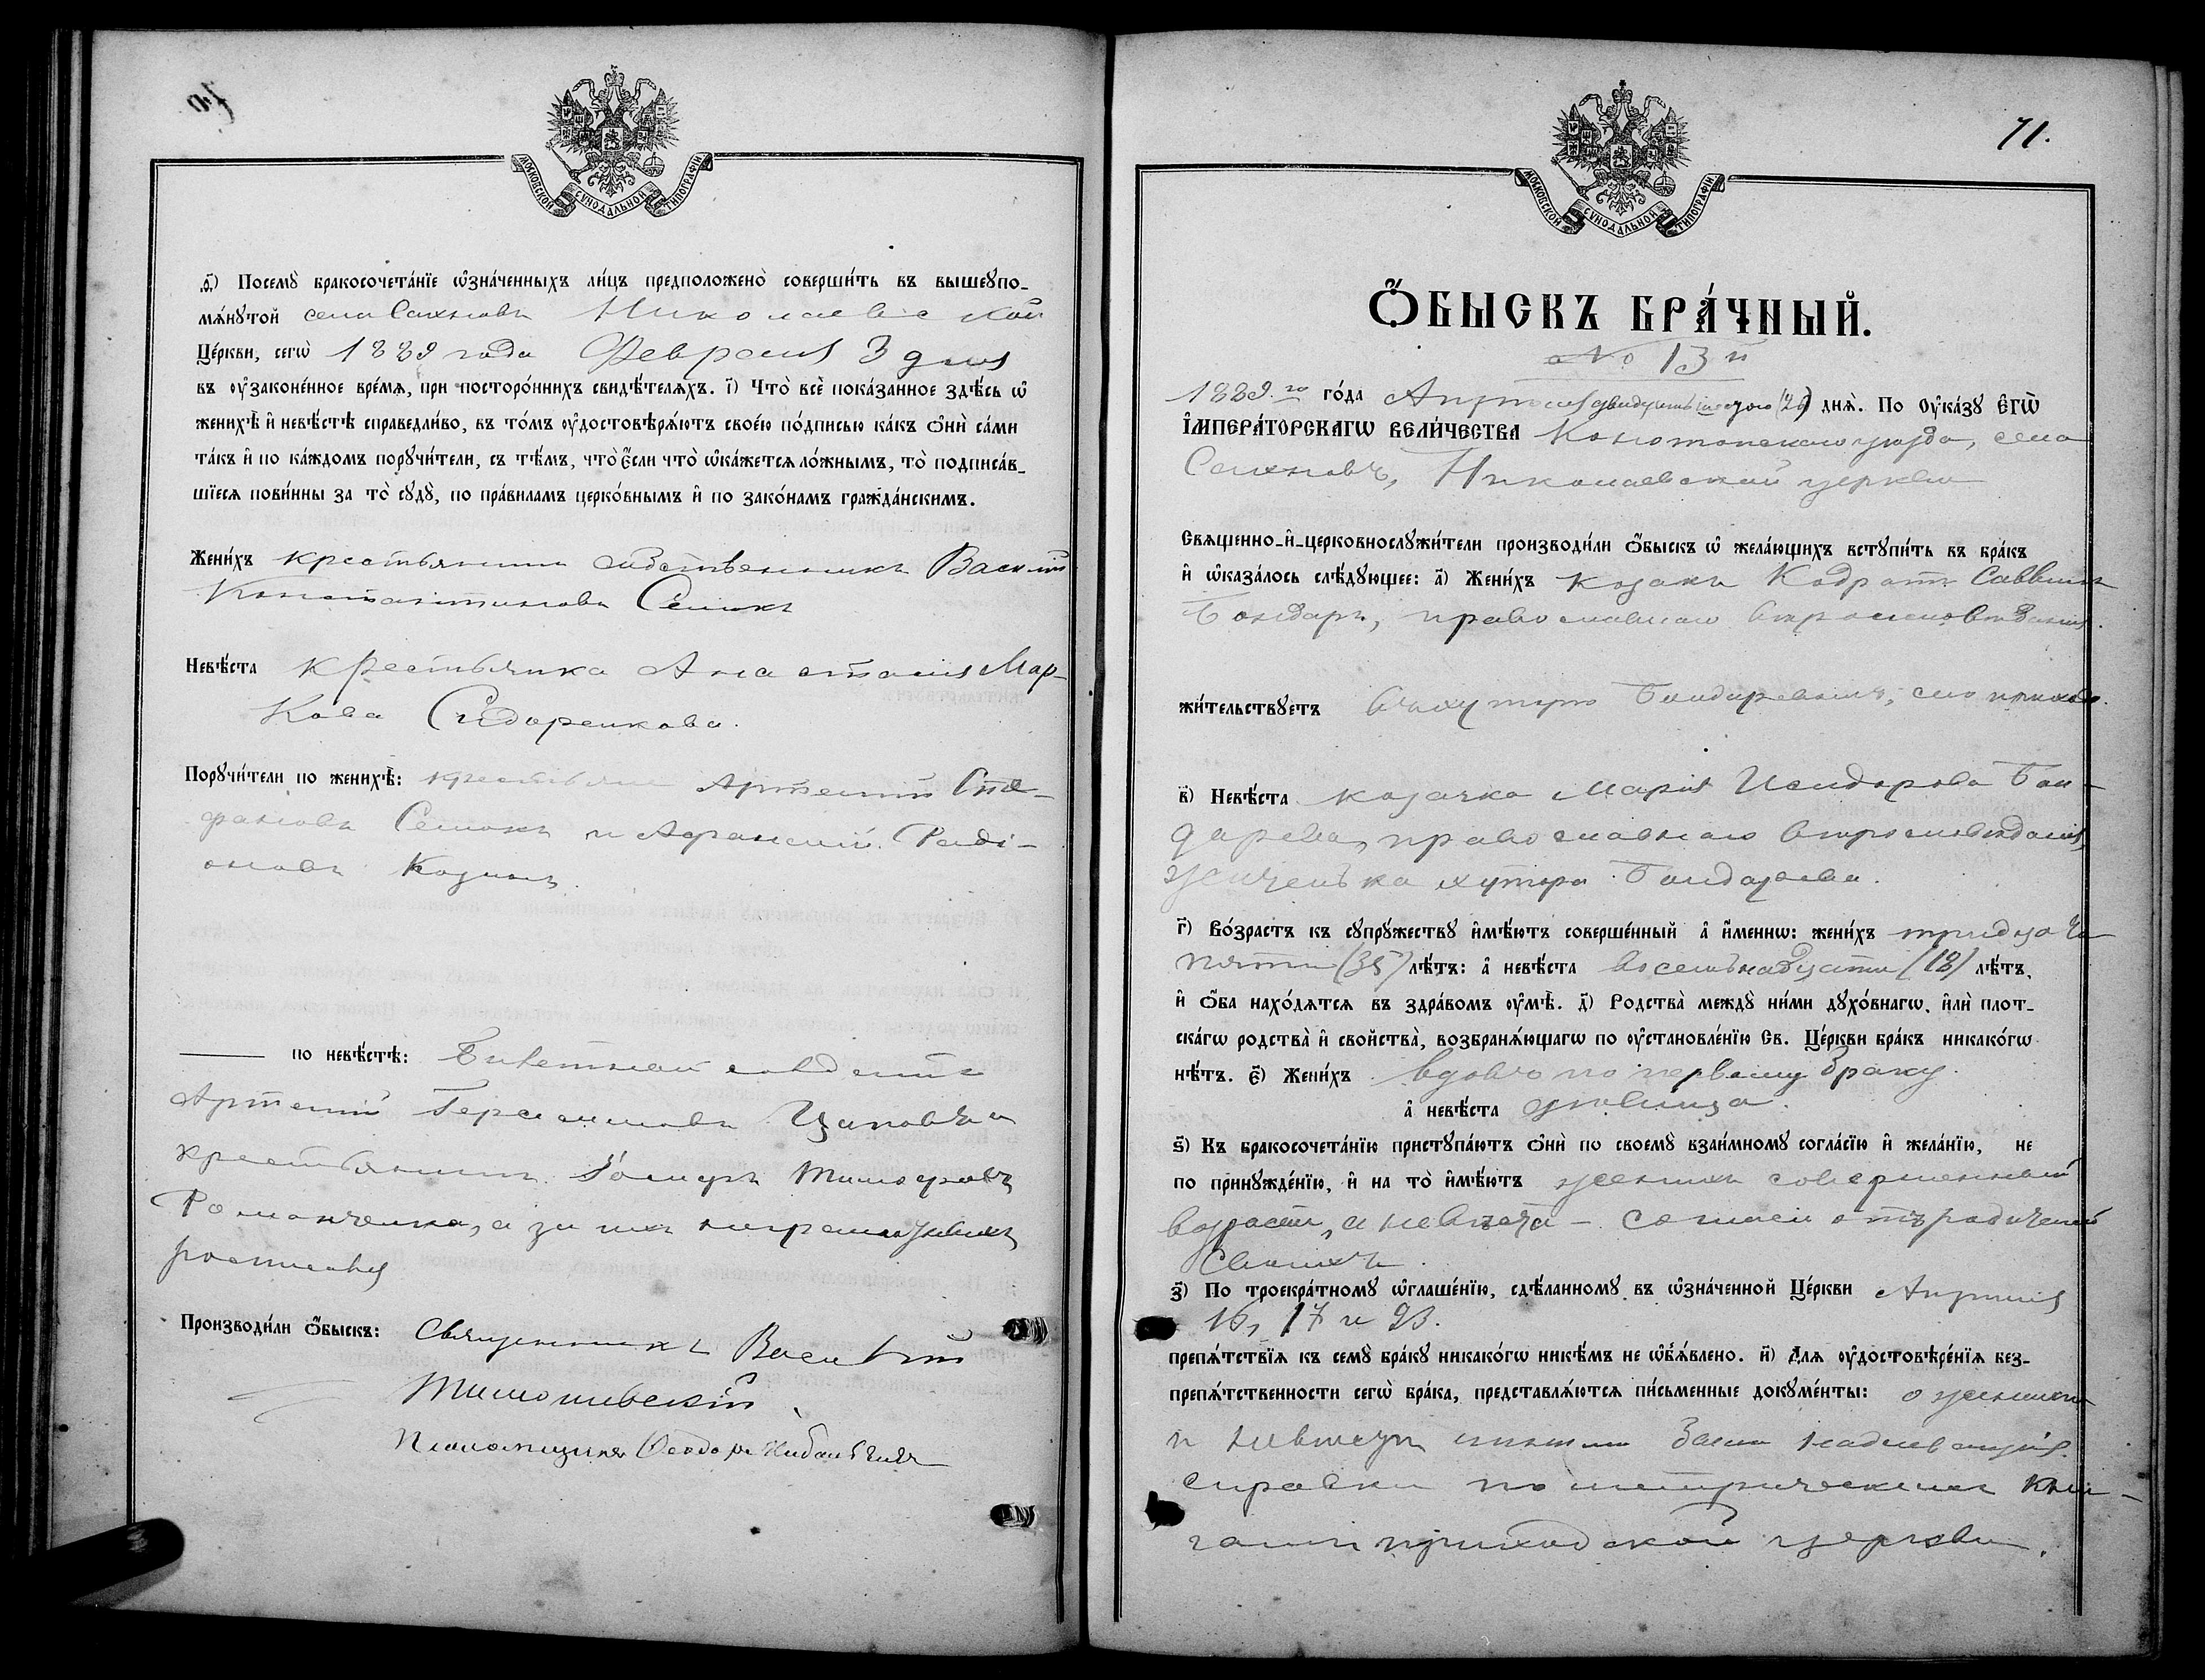 МОСКОВСКОЙ СѴНОДАЛЬНОЙ ТИПОГРАФІИ
д҃) Посемꙋ̀ бракосочета́нїе ѡ҆зна́ченныхъ ли́цъ предположено̀ соверши́ть въ вышеꙋпо-
мѧ́нꙋтой села Сахновъ Николаевской
Це́ркви, сегѡ̀ 1889 года Февраля 3 дня
въ ᲂу҆законе́нное вре́мѧ, при посторо́ннихъ свидѣ́телѧхъ. і҃) Что̀ всѐ пока́занное здѣ́сь ѡ҆
женихѣ̀ и҆ невѣ́стѣ справедли́во, въ то́мъ ᲂу҆достовѣрѧ́ютъ свое́ю по́дписью ка́къ ѻ҆нѝ са́ми
та́къ и҆ по ка́ждомъ порꙋчи́тели, съ тѣ́мъ, что̀ є҆́сли что̀ ѡ҆ка́жетсѧ ло́жнымъ, то̀ подписа́в-
шїесѧ пови́нны за то̀ сꙋдꙋ̀, по пра́виламъ церко́внымъ и҆ по зако́намъ гражда́нскимъ.
Жени́хъ крестьянинъ собственникъ Василій
Константиновъ Семокъ
Невѣ́ста крестьянка Анастасія Мар-
кова Сидоренкова.
Порꙋчи́тели по женихѣ̀: крестьяне Артемій Сте-
фановъ Семокъ и Афанасій Роди-
оновъ Козинъ.
по невѣ́стѣ: Билетный солдатъ
Артемій Герасимовъ и
крестьянинъ Тимофеевъ
Романченко, а за ихъ неграмотныхъ
росписався
Производи́ли ѻ҆́быскъ: Священникъ Василій
Псаломщикъ Ѳеодоръ
71.
МОСКОВСКОЙ СѴНОДАЛЬНОЙ ТИПОГРАФІИ
Ѻ҆́БЫСКЪ БРА́ЧНЫЙ.
№ 13й
1889го го́да Апрѣля двадцать шестого (26) днѧ̀. По ᲂу҆ка́зꙋ є҆гѡ̀
і҆мпера́торскагѡ вели́чества Конотопскаго уѣзда, села
Сахновъ, Николаевской церкви
Свѧщенно-и҆-церковнослꙋжи́тели производи́ли ѻ҆́быскъ ѡ҆ жела́ющихъ встꙋпи́ть въ бра́къ
и҆ ѡ҆каза́лось слѣ́дꙋющее: а҃) Жени́хъ козакъ Кодратъ Саввинъ
Бондарь, православнаго вѣроисповѣданія.
жи́тельствꙋетъ въ хуторѣ Бондаревомъ, сего прихода.
в҃) Невѣ́ста козачка Марія Исидорова Бон-
дарева, православнаго вѣроисповѣданія,
хутора Бондарева.
г҃) Во́зрастъ къ сꙋпрꙋ́жествꙋ и҆мѣ́ютъ соверше́нный а҆ и҆́меннѡ: жени́хъ тридцати
пяти (35) лѣ́тъ: а҆ невѣ́ста восемнадцати (18) лѣ́тъ,
и҆ ѻ҆́ба нахо́дѧтсѧ въ здра́вомъ ᲂу҆мѣ̀. д҃) Родства̀ междꙋ̀ ни́ми дꙋхо́внагѡ, и҆лѝ плот-
ска́гѡ родства̀ и҆ сво́йства̀, возбранѧ́ющагѡ по ᲂу҆становле́нїю Св. Це́ркви бра́къ никако́гѡ
нѣ́тъ. є҃) Жени́хъ вдовъ по первому браку.
а҆ невѣ́ста дѣвица.
ѕ҃) Къ бракосочета́нїю пристꙋпа́ютъ ѻ҆нѝ по своемꙋ̀ взаи́мномꙋ согла́сїю и҆ жела́нїю, не
по принꙋжде́нїю, и҆ на то̀ и҆мѣ́ютъ женихъ совершенный
возрастъ, а невѣста – согласіе отъ родителей
своихъ.
з҃) По троекра́тномꙋ ѡ҆глаше́нїю, сдѣ́ланномꙋ въ ѡ҆зна́ченной Це́ркви Апрѣля
16, 17 и 23.
препѧ́тствїѧ къ семꙋ̀ бра́кꙋ никако́гѡ никѣ́мъ не ѡ҆б̾ѧ́влено. и҃) Длѧ ᲂу҆достовѣре́нїѧ без-
препѧ́тственности сегѡ̀ бра́ка, представлѧ́ютсѧ пи́сьменные докꙋме́нты: о женихѣ
и невѣстѣ надлежащія
справки по метрическимъ кни-
гамъ приходской церкви.